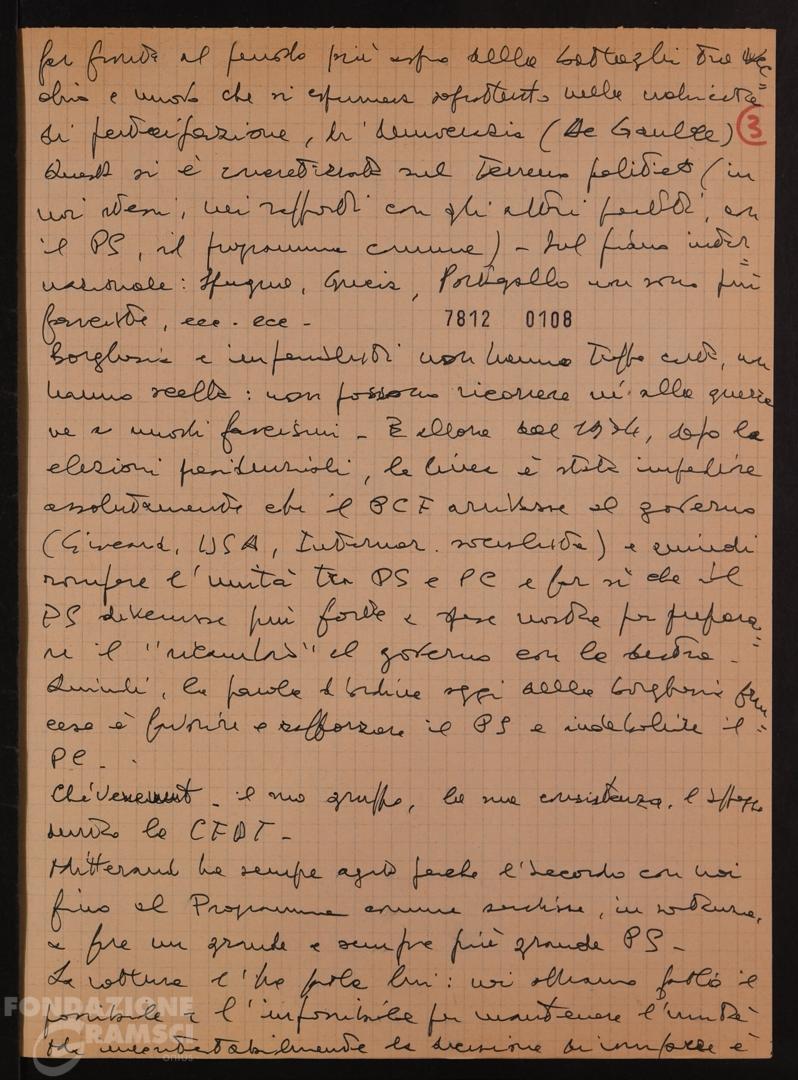 far fronte al periodo più aspro della battaglia tra vec=
chio e nuovo che si esprimeva soprattutto nella richiesta
di partecipazione, di democrazia (De Gaulle) 3
Questo si è concretizzato sul terreno politico (in
noi stessi, nei rapporti con gli altri partiti, con
il PS, il programma comune) - Sul piano inter=
nazionale: Spagna, Grecia, Portogallo non sono più
fasciste, ecc. ecc -
7812 0108
Borghesia e imperialisti non hanno troppe carte, non
hanno scelta: non possono ricorrere né alla guerra
né a nuovi fascismi - E allora dal 1974, dopo le
elezioni presidenziali, la linea è stata impedire
assolutamente che il PCF arrivasse al governo
(Giscard, USA, Internaz. socialista) e quindi
rompere l'unità tra PS e PC e far sì che il
PS divenisse più forte a spese nostre per prepara=
re il "ricambio" al governo con la destra -
Quindi, la parola d'ordine oggi della borghesia fran=
cese è favorire e rafforzare il PS e indebolire il
PC -
Chévenement - il suo gruppo, la sua consistenza, l'
la CFDT -
Mitterand ha sempre agito perché l'accordo con noi
fino al Programma comune servisse,
a fare un grande e sempre più grande PS -
La rottura l'ha lui: noi abbiamo fatto il
possibile e l'impossibile per mantenere l'unità
Ma incontestabilmente la decisione di rompere è
FONDAZIONE
GRAMSCI
onlus